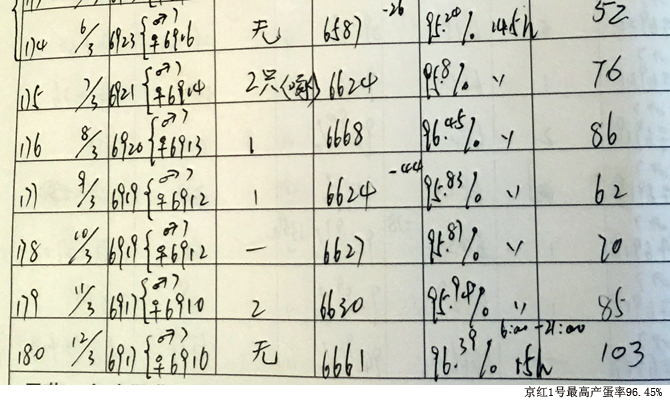 174 6/3 6923 { ♂7 ♀6916 无 6587 -26 95.20% 15h 52
175 7/3 6921 { ♂7 ♀6914 2只 6624 95.8% 〃 76
176 8/3 6920 { ♂7 ♀6913 1 6668 96.45% 〃 86
177 9/3 6919 { ♂7 ♀6912 1 6624 -44 95.83% 〃 62
178 10/3 6919 { ♂7 ♀6912 一 6627 95.87% 〃 70
179 11/3 6917 { ♂7 ♀6910 2 6630 95.94% 〃 85
180 12/3 6917 { ♂7 ♀6910 无 6661 96.39% 6:00-21:00 15h 103
京红1号最高产蛋率96.45%